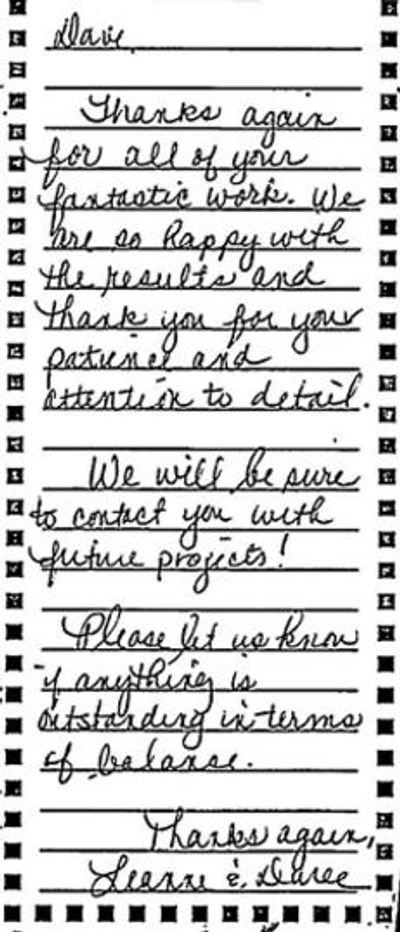 Dave,
Thanks again
for all of your
fantastic work. We
are so happy with
the results and
thank you for your
patience and
attention to detail.
We will be sure
to contact you with
future projects!
Please let us know
if anything is
outstanding in terms
of balance.
Thanks again,
Leanne &